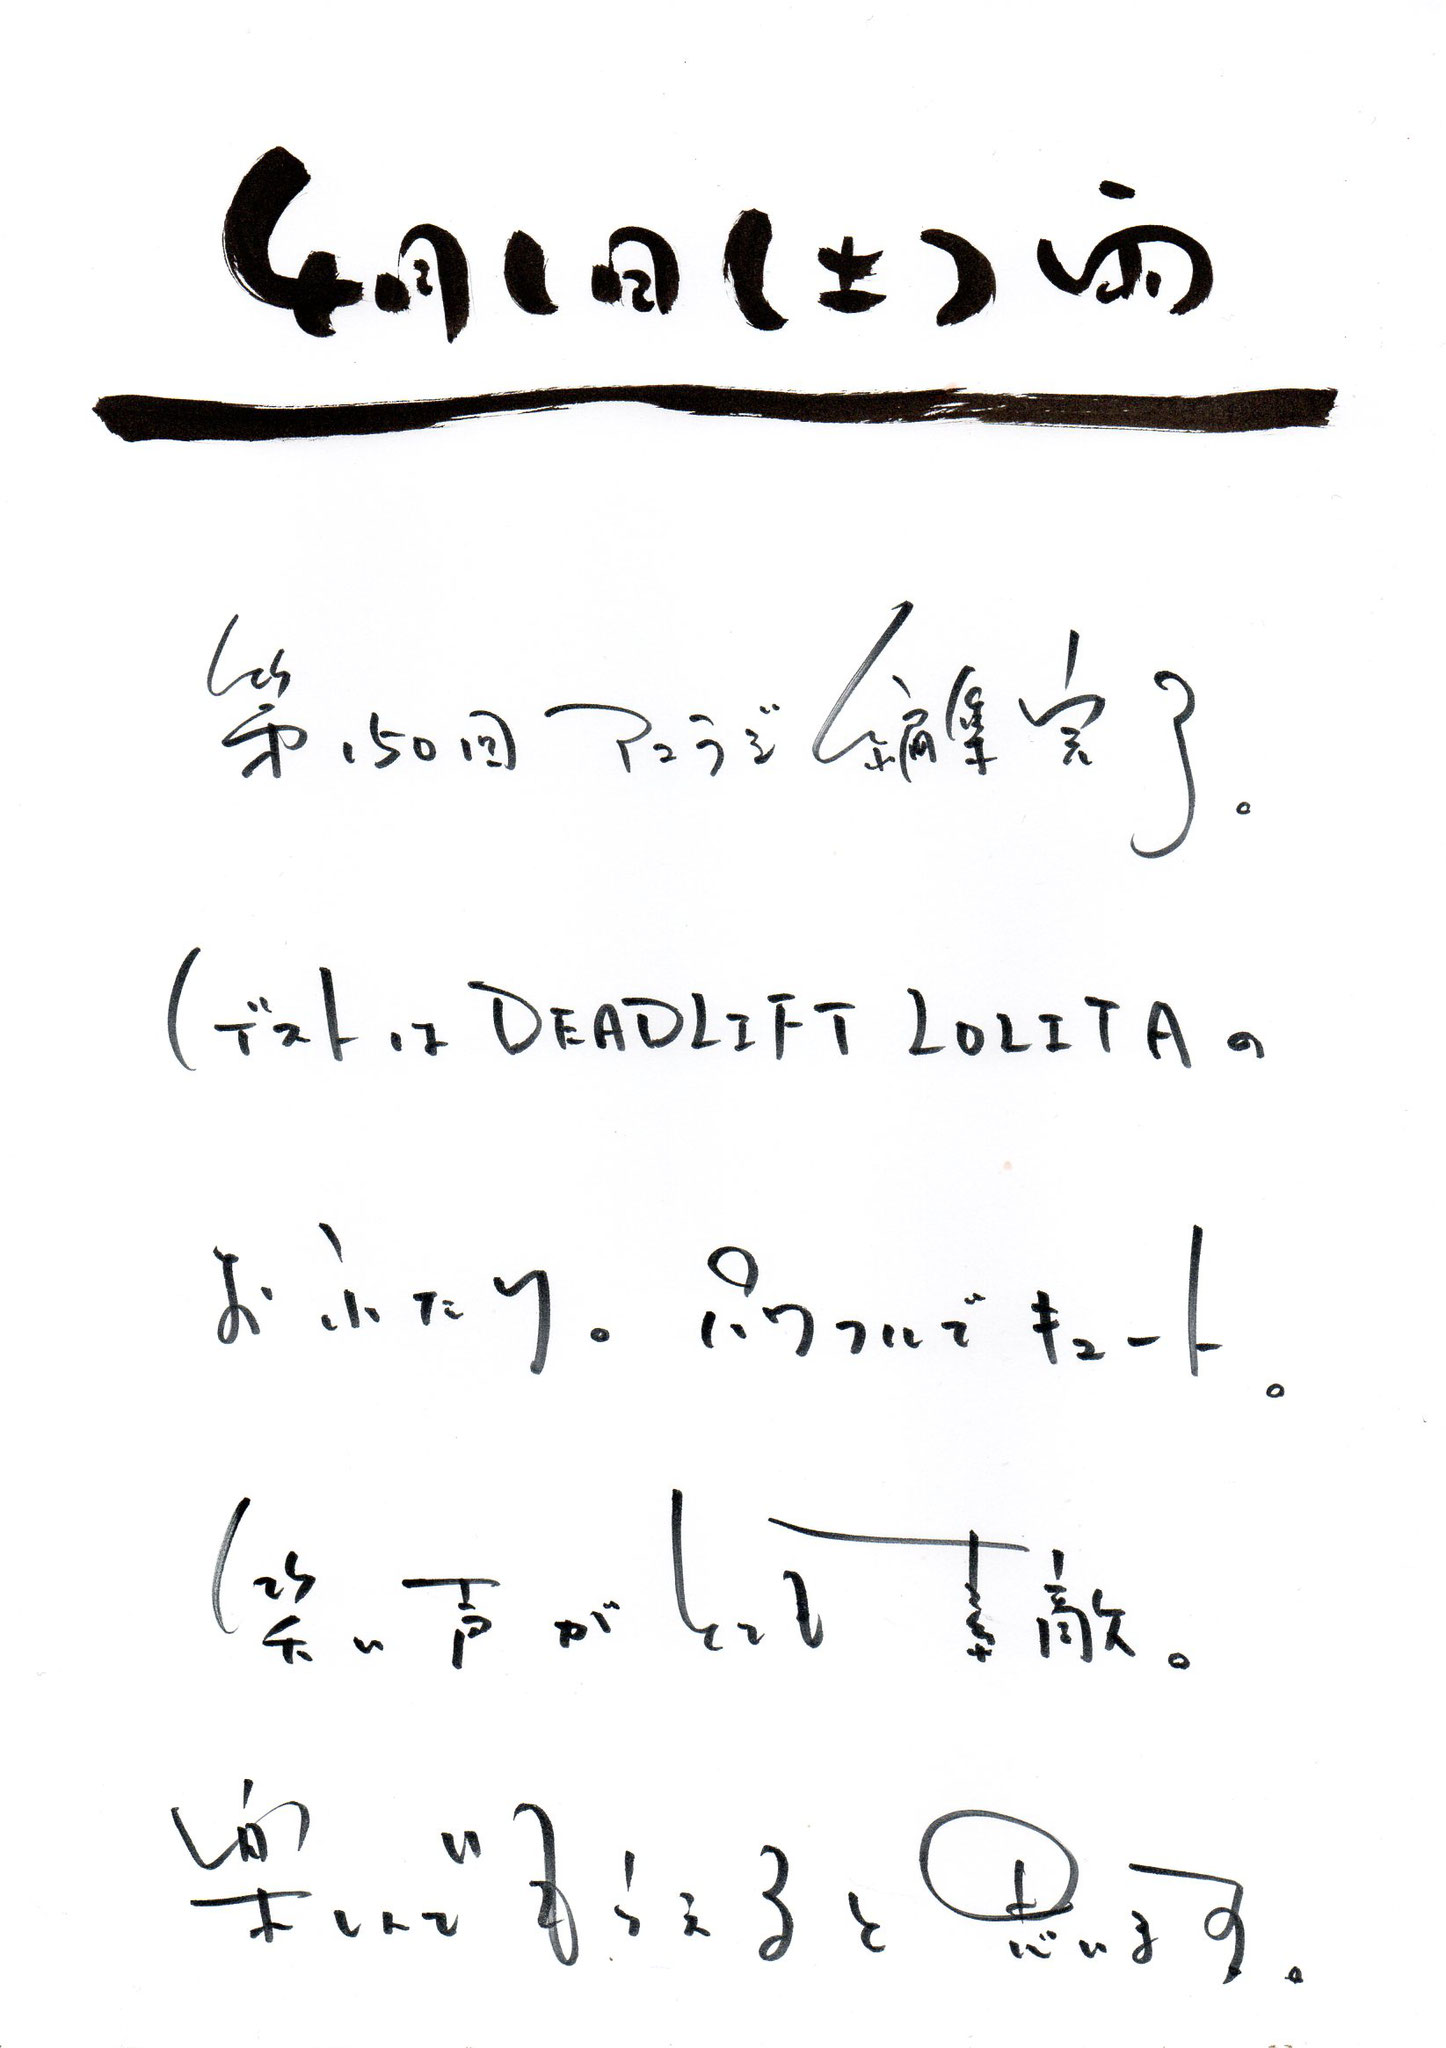 4月1日(土)雨
第150回アコラジ編集完了。
ゲストはDEADLIFT LOLITAの
おふたり。パワフルでキュート。
笑い声がとても素敵。
楽しんでもらえると思います。